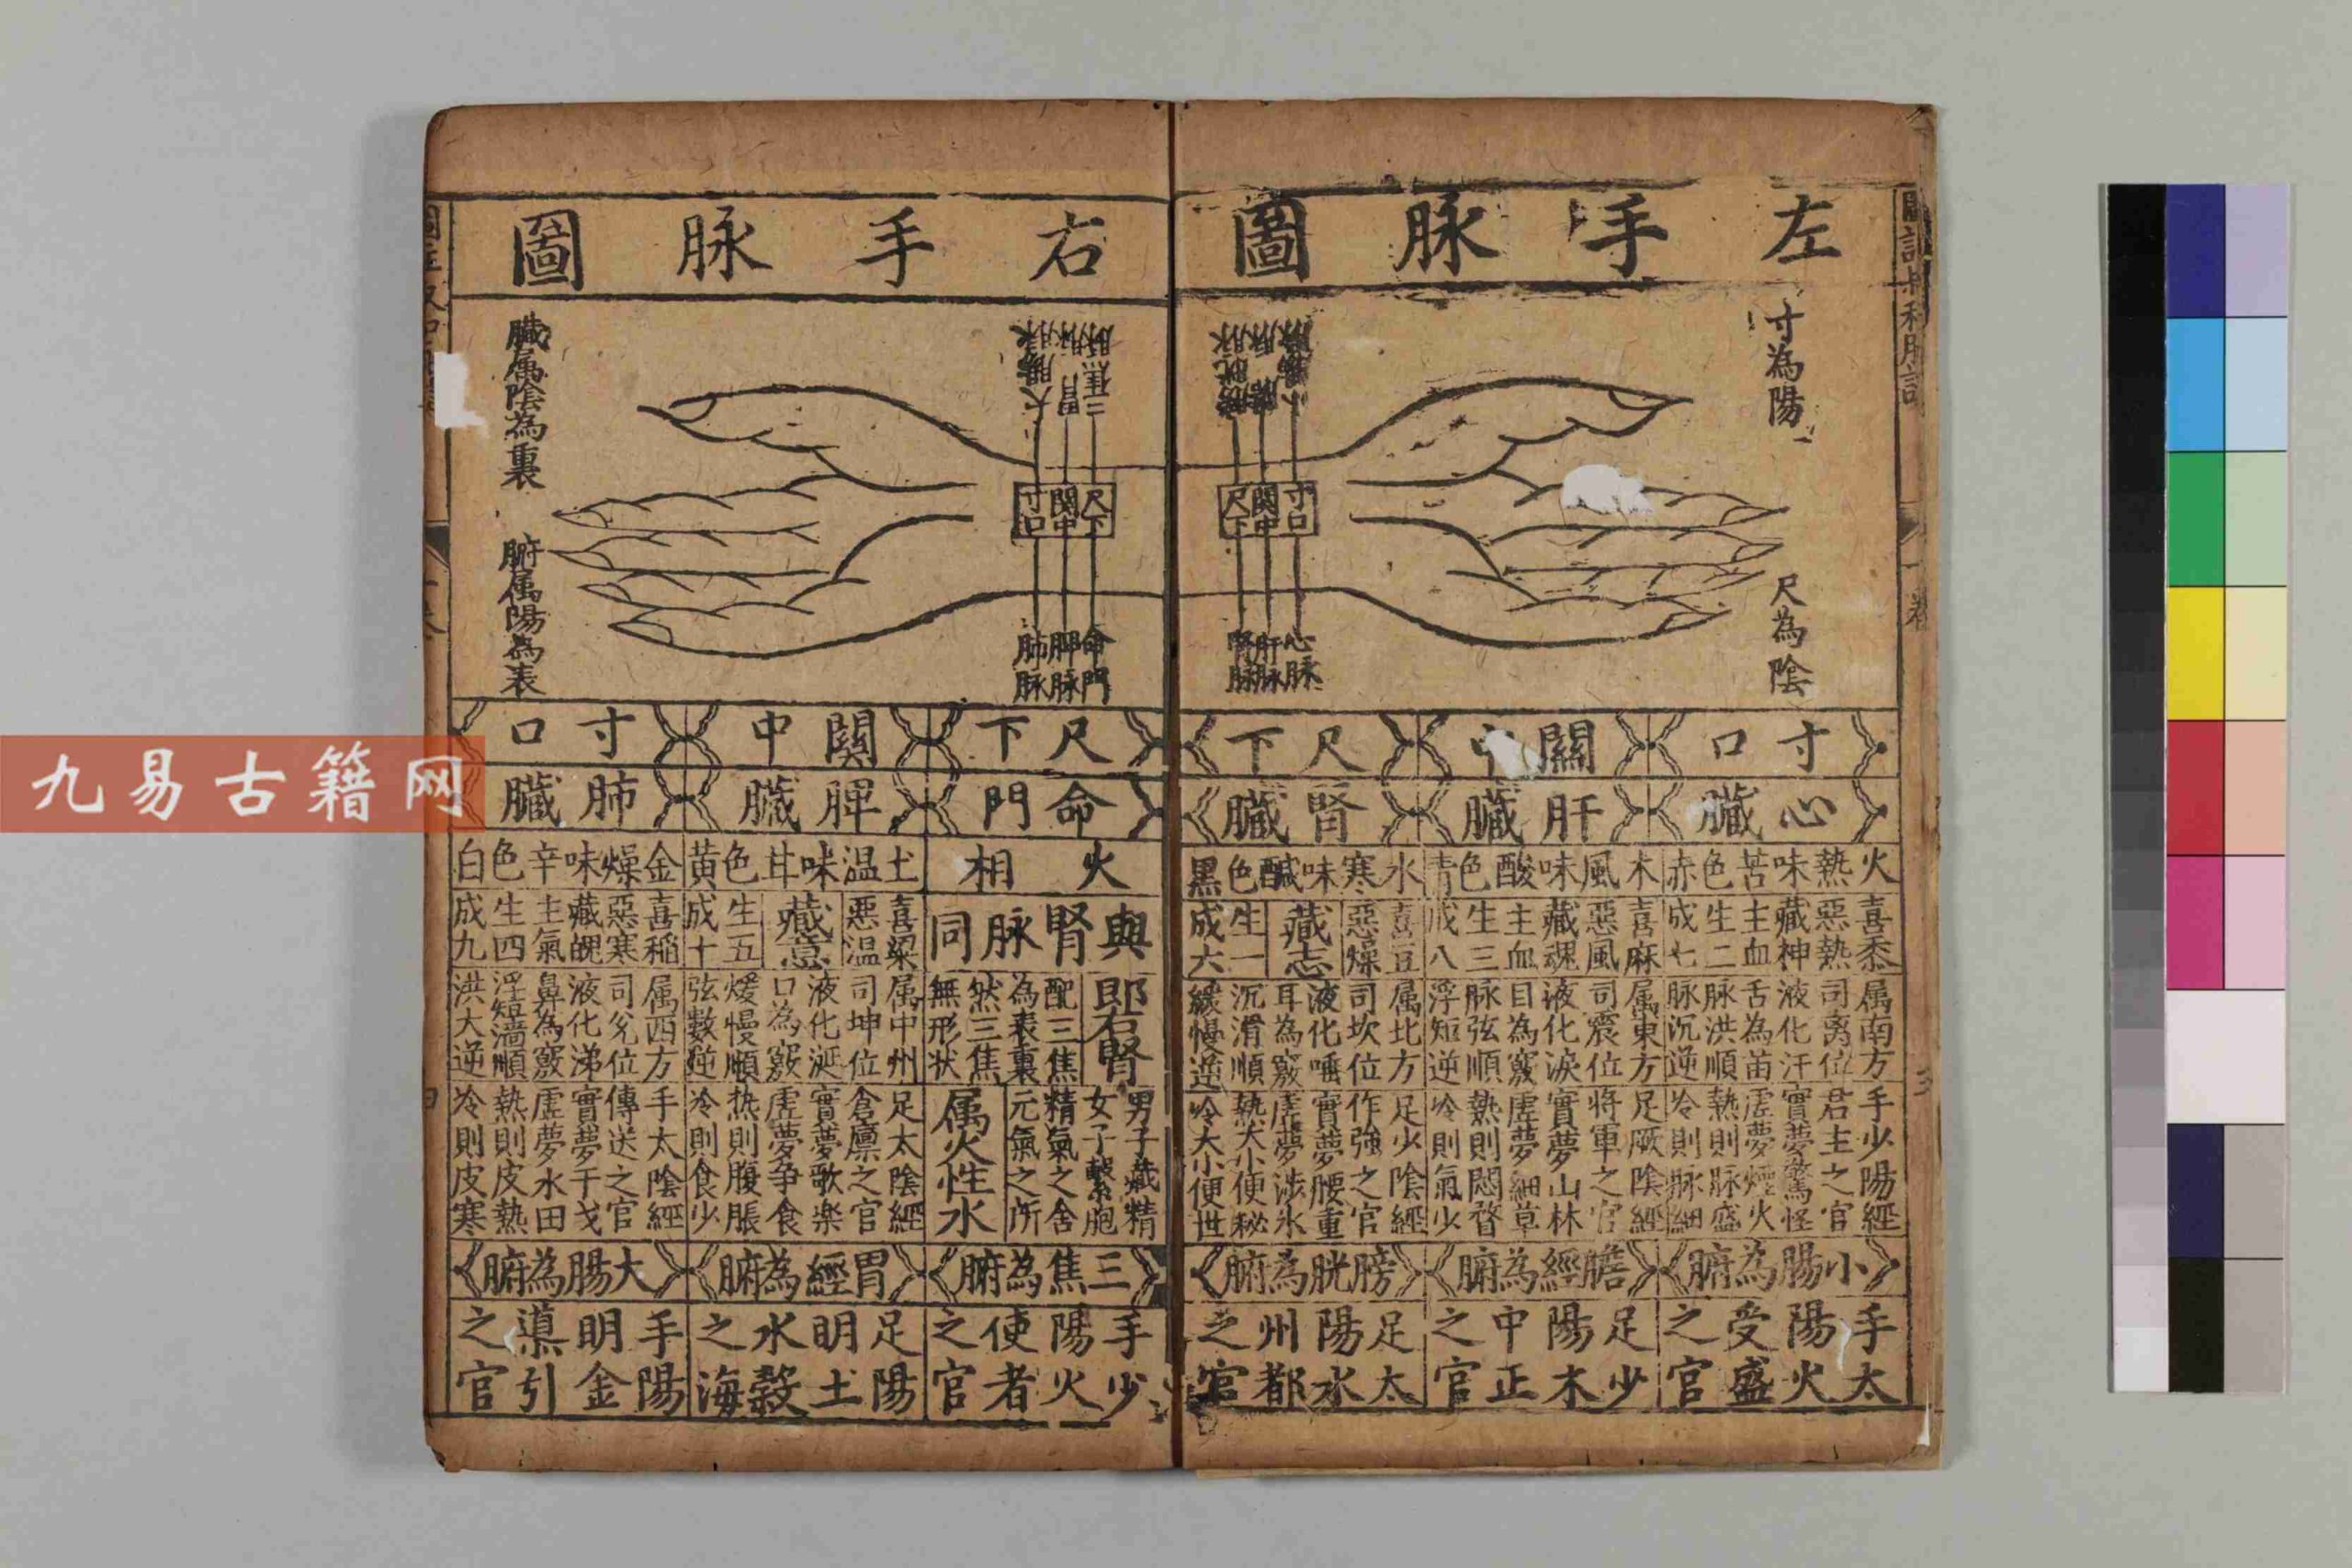 左手脉圖
寸為陽
尺為陰
小腸脉
膽脉
膀胱脉
寸口
關中
尺下
心脉
肝脉
腎脉
寸口
關
尺下
心臓
肝臓
腎臓
火熱味苦色赤
木風味酸色青
水寒味鹹色黒
喜黍
惡熱
藏神
主血
生二
成七
喜麻
惡風
藏魂
主血
生三
成八
喜豆
惡燥
藏志
生一
成六
属南方
司离位
液化汗
舌為苗
脉洪順
脉沉逆
属東方
司震位
液化淚
目為竅
脉弦順
浮短逆
属北方
司坎位
液化唾
耳為竅
沉滑順
緩慢逆
手少陽經
君主之官
實夢驚怪
虚夢煙火
熱則脉盛
冷則脉細
足厥陰經
將軍之官
實夢山林
虚夢細草
熱則悶瞀
冷則氣少
足少陰經
作強之官
實夢腰重
虚夢涉水
熱大小便秘
冷大小便世
小腸為腑
膽經為腑
膀胱為腑
手太
陽火
受盛
之官
足少
陽木
中正
之官
足太
陽水
州都
之官
右手脉圖
三焦脉
胃脉
大腸脉
尺下
関中
寸口
命門
脾脉
肺脉
臓属陰為裏
腑属陽為表
尺下
関中
寸口
命門
脾臓
肺臓
火相
土温味甘色黄
金燥味辛色白
與腎脉同
喜粱
惡温
藏意
生五
成十
喜稲
惡寒
藏魄
主氣
生四
成九
即右腎
配三焦
為表裏
然三焦
無形状
属中州
司坤位
液化涎
口為竅
煖慢順
弦數逆
属西方
司兌位
液化涕
鼻為竅
浮短濇順
洪大逆
男子藏精
女子繫胞
精氣之舍
元氣之所
属火性水
足太陰經
倉廪之官
實夢歌楽
虚夢争食
热則腹脹
冷則食少
手太陰經
傳送之官
實夢干戈
虚夢水田
熱則皮熱
冷則皮寒
三焦為腑
胃經為腑
大腸為腑
手少
陽火
使者
之官
足陽
明土
水穀
之海
手陽
明金
導引
之官
九易古籍网